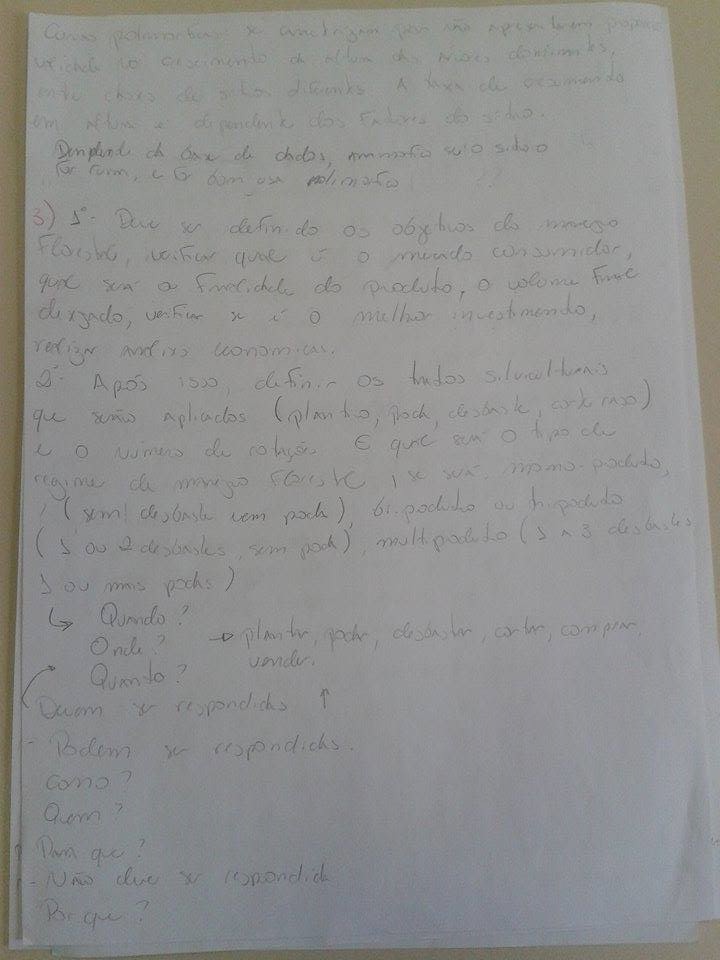 Curvas polimorficas: se caractrizam por não apresentarem proporcio
nalidade no crescimento da altura das árvores dominantes,
entre classes de sitios diferentes. A taxa de crescimento
em altura é dependente dos Fatores do sitio.
Dempende da base de dados, se o sitio
for ruim, e for bom usa polimorfica
3) 1º- Deve ser definido os objetivos do manejo
Florestal, verificar qual é o mercado consumidor,
qual será a finalidade do produto, o volume Final
desejado, verificar se é o melhor investimento,
realizar analises economicas.
2º- Após isso, definir os tratos silviculturais
que serão aplicados (plantio, poda, desbaste, corte raso)
e o número de rotação. E qual será o tipo de
regime de manejo Florestal, se será mono-produto,
(sem desbaste nem poda), bi.produto ou tri.produto
(1 ou 2 desbastes, sem poda), multiproduto (1 a 3 desbastes
1 ou mais podas)
↳ Quando?
Onde? → plantar, podar, desbastar, cortar, comprar,
vender.
Quanto?
Devem ser respondidas ↑
- Podem ser respondidas.
como?
Quem?
Para que?
- Não deve ser respondida
Por que?